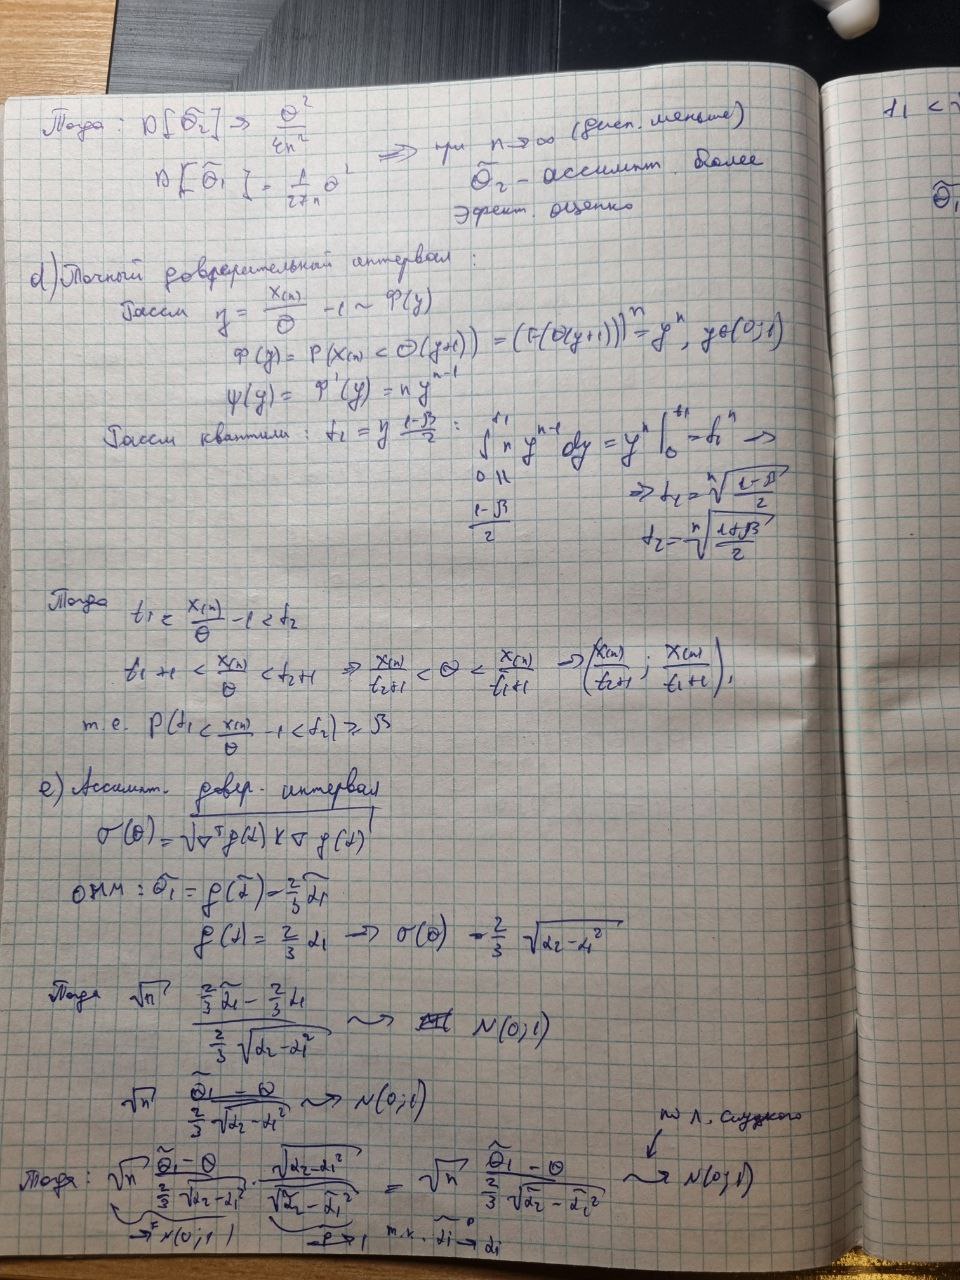 Тогда: D[θ̃₂] → θ²/5n²
D[θ̃₁] = 1/27n θ² ⇒ при n→∞ (дисп. меньше)
θ̃₂ - ассимпт. более
эфект. оценка
d) Точный доверительный интервал:
Рассм η = X(n)/θ - 1 ~ Φ(y)
Φ(y) = P(X(n) < θ(y+1)) = (F(θ(y+1)))ⁿ = yⁿ, y∈(0;1)
ψ(y) = Φ'(y) = n yⁿ⁻¹
Рассм квантили: t₁ = η (1-β)/2 : ∫₀^t₁ n yⁿ⁻¹ dy = yⁿ |₀^t₁ = t₁ⁿ →
|| (1-β)/2
⇒ t₁ = ⁿ√((1-β)/2)
t₂ = ⁿ√((1+β)/2)
Тогда t₁ < X(n)/θ - 1 < t₂
t₁+1 < X(n)/θ < t₂+1 ⇒ X(n)/(t₂+1) < θ < X(n)/(t₁+1) → (X(n)/(t₂+1) ; X(n)/(t₁+1)),
т.е. P(t₁ < X(n)/θ - 1 < t₂) ≥ β
e) Ассимпт. довер. интервал
σ(θ) = √(∇ᵀg(α) K ∇g(α))
ОММ: θ̃₁ = g(α̃) = 2/3 α̃₁
g(α) = 2/3 α₁ → σ(θ) = 2/3 √(α₂-α₁²)
Тогда √n (2/3 α̃₁ - 2/3 α₁)/(2/3 √(α₂-α₁²)) ⇝ N(0;1)
√n (θ̃₁ - θ)/(2/3 √(α₂-α₁²)) ⇝ N(0;1)
по л. слуцкого
Тогда: √n (θ̃₁ - θ)/(2/3 √(α₂-α₁²)) · √(α₂-α₁²)/√(α̃₂-α̃₁²) = √n (θ̃₁ - θ)/(2/3 √(α̃₂-α̃₁²)) ⇝ N(0;1)
→ N(0;1) →ᵖ 1 т.к. α̃ᵢ →ᵖ αᵢ
t₁ <
θ̃₁